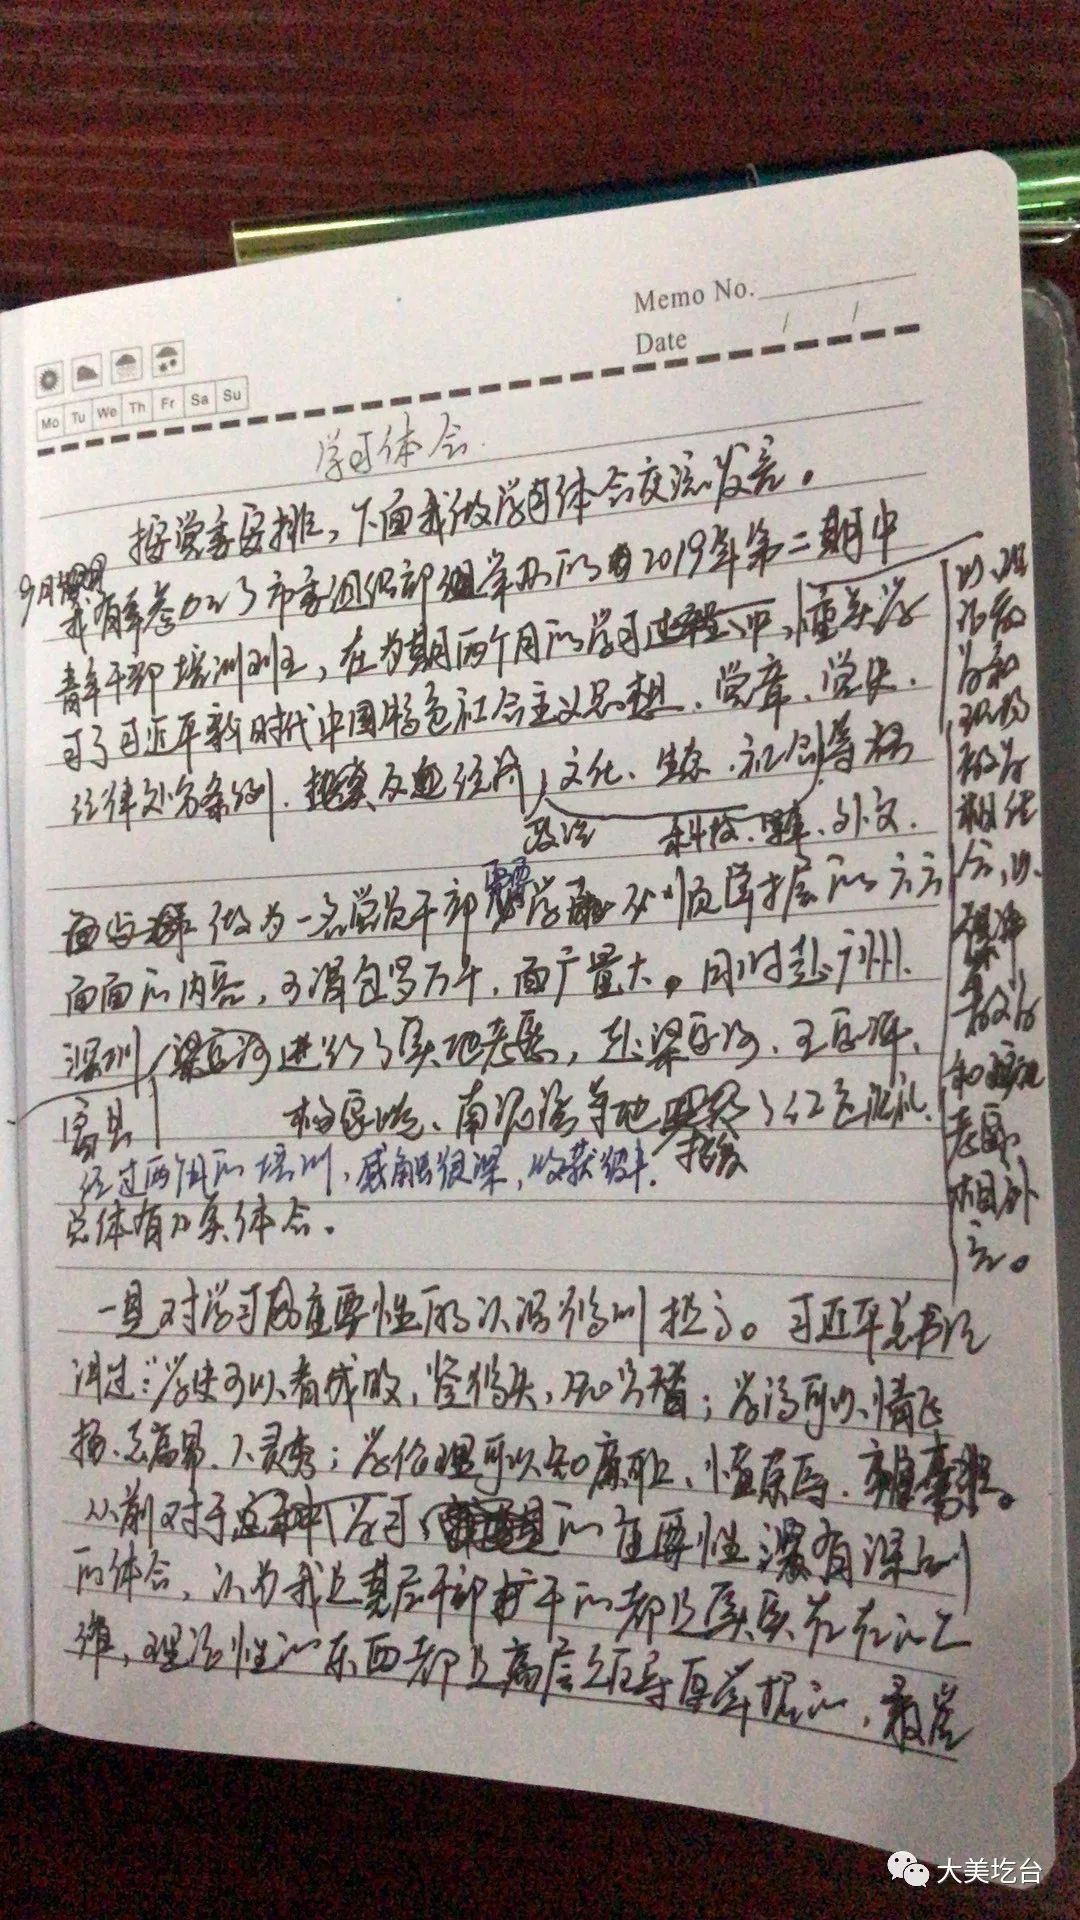 Memo No.
Date / /
Mo Tu We Th Fr Sa Su
学习体会.
按党委安排，下面我做学习体会交流发言。
9月
我有幸参加了市委组织部组举办的2019年第二期中
青年干部培训班，在为期两个月的学习过程中，重点学
习了习近平新时代中国特色社会主义思想、党章、党史、
纪律处分条例、经济，文化、生态、
政治 科技、军事、外交.
做为一名党员干部需要学习必须掌握的方方
面面的内容，可谓包罗万千，面广量大。同时赴广州、
深圳进行了实地考察，赴梁家河、王家坪、
富县 杨家岭、南泥湾等地接受了红色洗礼.
经过两个月的培训，感触很深，收获很丰.
总体有几条体会.
一是对学习重要性的认识得到提高。习近平总书记
讲过：“学史可以看成败，鉴得失，知兴替；学诗可以情飞
扬、志高昂、人灵秀；学伦理可以知廉耻、懂荣辱、辨是非。
从前对于学习的重要性没有深刻
的体会，认为我是基层干部 干的都是实实在在的工
作，理论性的东西都是高层领导掌握的，
以班
教学和
现场
教学
相结
合，以
教学
和
考察
相补
充。
大美圪台